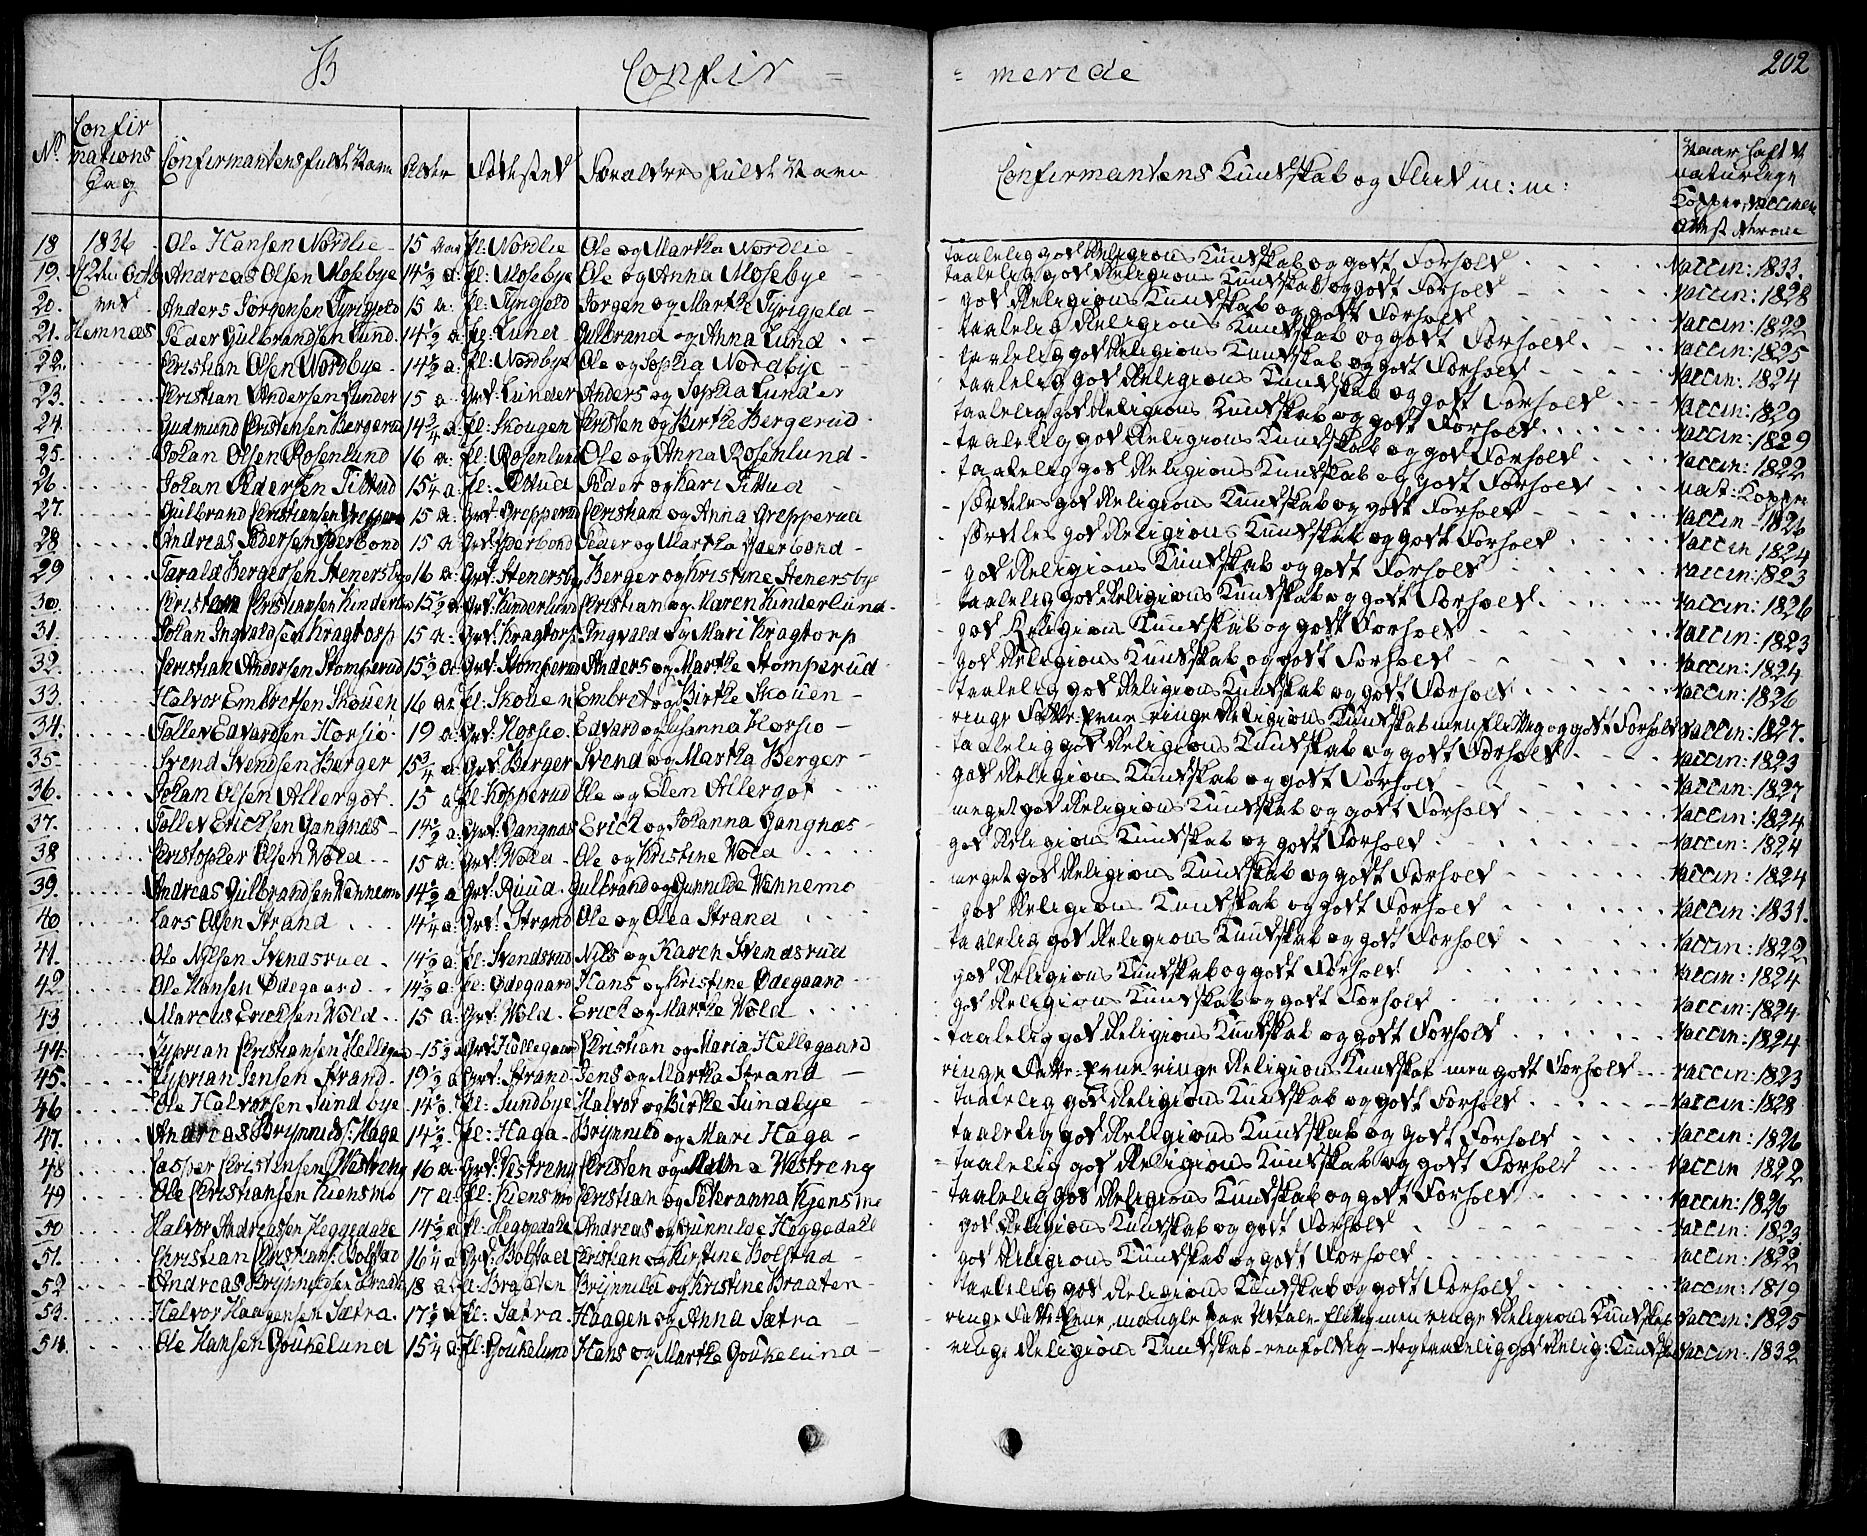 B Confir = = merede 202
No. Confirmations Dag Confirmantens fulde Navn Alder Fødested Forældres fulde Navn Confirmantens Kundskab og Flid m: m:
18 1836 Ole Hansen Nordlie 15 Aar fl: Nordlie Ole og Martha Nordlie taalelig god Religions Kundskab og godt Forhold Vaccin: 1833.
19. Andreas Olsen Mosebye 14½ a: fl: Mosebye Ole og Anna Mosebye taalelig god Religions Kundskab og godt Forhold Vaccin: 1828
20. Anders Jørgensen Tyrigjeld 15 a: fl: Tyrigjeld Jørgen og Marthe Tyrigjeld god Religions Kundskab og godt Forhold Vaccin: 1822
21. Hemnæs Peder Gulbrandsen Lund 14½ a fl: Lund Gulbrand og Anna Lund taalelig Religions Kundskab og godt Forhold Vaccin: 1825
22. Christian Olsen Nordbye 14½ a: fl: Nordbye Ole og Sophia Nordbye taalelig god Religions Kundskab og godt Forhold Vaccin: 1824
23. Christian Andersen Lunder 15 a Grd: Lunder Anders og Sophia Lunder taalelig god Religions Kundskab og godt Forhold Vaccin: 1829
24. Gudmund Christensen Bergerud 14¾ a fl: Skougen Christen og Birthe Bergerud taalelig god Religions Kundskab og godt Forhold Vaccin: 1829
25. Johan Olsen Rosenlund 16 a: fl: Rosenlund Ole og Anna Rosenlund taalelig god Religions Kundskab og god Forhold Vaccin: 1822
26. Johan Pedersen Tittud 15¼ a: fl: Tittud Peder og Kari Tittud taalelig god Religions Kundskab og godt Forhold nat: Kopper
27. Gulbrand Christiansen Grepperud 15 a: Grd: Grepperud Christian og Anna Grepperud særdeles god Religions Kundskab og godt Forhold Vaccin 1826
28 Andreas Pedersen 15 a Grd: Peder og Martha særdeles god Religions Kundskab og godt Forhold Vaccin 1824
29 Harald Bergersen Stenersby 16 a: Grd: Stenersby Berger og Kristine Stenersbye god Religions Kundskab og godt Forhold Vaccin: 1823
30. Christian Christiansen Kinderlund 15½ a Grd: Kinderlund Christian og Karen Kinderlund taalelig god Religions Kundskab og godt Forhold Vaccin: 1826
31. Johan Ingvaldsen Kragtorp 15 a: Grd: Kragtorp Ingvald og Mari Kragtorp god Religions Kundskab og godt Forhold Vaccin: 1823
32. Christian Andersen Stomperud 15½ a: Grd: Stomperud Anders og Marthe Stomperud god Religions Kundskab og godt Forhold Vaccin: 1824
33. Halvor Embretsen Skouen 16 a: fl: Skouen Embret og Birthe Skouen taalelig god Religions Kundskab og godt Forhold Vaccin: 1826
34. Tollev Edvardsen Horsiø 19 a: Grd: Horsiø Edvard og Susanna Horsiø ringe Fatte-Evne ringe Religions Kundskab men flittig og godt Forhold Vaccin: 1827.
35 Svend Svendsen Berger 15¾ a Grd: Berger Svend og Martha Berger taalelig god Religions Kundskab og godt Forhold Vaccin: 1823
36. Johan Olsen Allergot 15 a fl: Kopperud Ole og Elen Allergot god Religions Kundskab og godt Forhold Vaccin: 1827
37. Tollev Ericksen Gangnæs 14½ a: Grd: Gangnæs Erick og Johanna Gangnæs meget god Religions Kundskab og godt Forhold Vaccin: 1824
38 Christopher Olsen Wold 15 a: Grd: Wold Ole og Kristine Wold god Religions Kundskab og godt Forhold Vaccin: 1824
39. Andreas Gulbrandsen Wennemo 14½ a Grd: Ruud Gulbrand og Gunnilde Wennemo meget god Religions Kundskab og godt Forhold Vaccin: 1824
40 Lars Olsen Strand 14¼ a: Grd: Strand Ole og Olea Strand god Religions Kundskab og godt Forhold Vaccin: 1831.
41. Ole Nilsen Svendsrud 14½ a: fl: Svendsrud Nils og Karen Svendsrud taalelig god Religions Kundskab og godt Forhold Vaccin: 1822
42 Ole Hansen Ødegaard 14½ a: fl: Ødegaard Hans og Kristine Ødegaard god Religions Kundskab og godt Forhold Vaccin: 1824
43 Marcus Ericksen Wold 15 a: Grd: Wold Erick og Marthe Wold god Religions Kundskab og godt Forhold Vaccin: 1824
44. Cyprian Christiansen Hellegaard 15½ a Grd Hellegaard Christian og Maria Hellegaard taalelig god Religions Kundskab og godt Forhold Vaccin: 1824
45. Cyprian Jensen Strand 19½ a Grd: Strand Jens og Martha Strand ringe Fatte-Evne ringe Religions Kundskab men godt Forhold Vaccin: 1823
46 Ole Halvorsen Sundbye 14½ a fl: Sundbye Halvor og Birthe Sundbye taalelig god Religions Kundskab og godt Forhold Vaccin: 1828
47. Andreas Brynnilds: Haga 14½ fl: Haga Brynnild og Mari Haga taalelig god Religions Kundskab og godt Forhold Vaccin: 1826
48 Casper Christensen Westreng 16 a Grd: Vestreng Christen og Westreng taalelig god Religions Kundskab og godt Forhold Vaccin 1822
49 Ole Christiansen Kiensmo 17 a: fl: Kiensmo Christian og Severanna Kjensmo taalelig god Religions Kundskab og godt Forhold Vaccin: 1826
50 Halvor Andreasen Heggedahl 14½ a fl: Heggedahl Andreas og Gunnilde Heggedahl god Religions Kundskab og godt Forhold Vaccin: 1823
51. Christian Christians: Bolstad 16¼ a Grd: Bolstad Christian og Kirstine Bolstad god Religions Kundskab og godt Forhold Vaccin: 1822
52 Andreas Brynnildsen Braaten 18 a: fl: Braaten Brynnild og Kristine Braaten taalelig god Religions Kundskab og godt Forhold Vaccin: 1819
53. Halvor Haagensen Sætra 17½ a fl: Sætra Haagen og Anna Sætra ringe Fatte-Evne, men ringe Religions Kundskab Vaccin: 1825
54. Ole Hansen Goukelund 15¼ a fl: Goukelund Hans og Marthe Goukelund ringe Religions Kundskab - eenfoldig - Vaccin: 1832